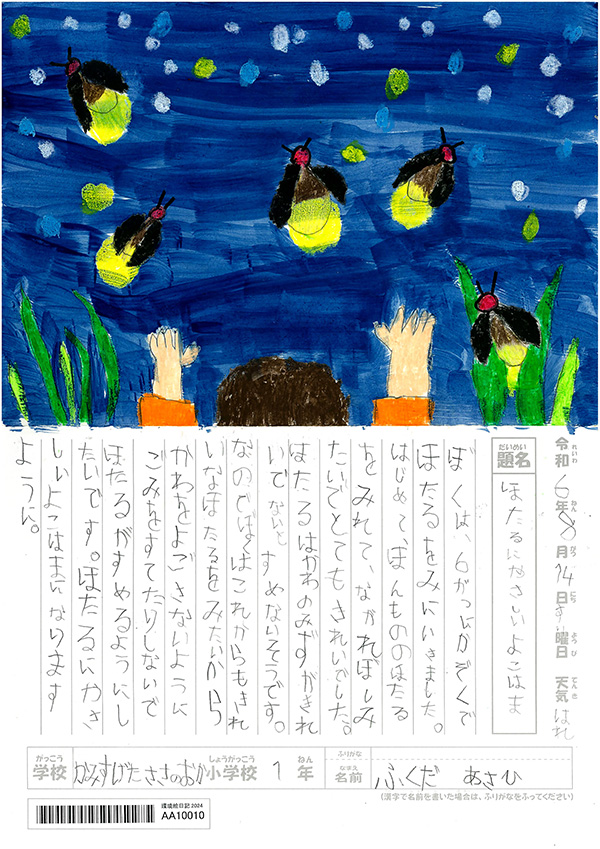 令和6年8月14日すい曜日 天気 はれ
れいわ ねん がつ にち ようび てんき
だいめい
題名 ほたるにやさしいよこはま
ぼくは、6がつにかぞくで
ほたるをみにいきました。
はじめて、ほんもののほたる
をみれて、ながれぼしみ
たいでとてもきれいでした。
ほたるはかわのみずがきれ
いでないとすめないそうです。
なのでぼくはこれからもきれ
いなほたるをみたいから
かわをよごさないように
ごみをすてたりしないで
ほたるがすめるようにし
たいです。ほたるにやさ
しいよこはまになります
ように。
がっこう しょうがっこう ねん
学校 かみすげたささのおか小学校 1年
ふりがな
なまえ
名前 ふくだ あさひ
(漢字で名前を書いた場合は、ふりがなをふってください)
環境絵日記2024
AA10010